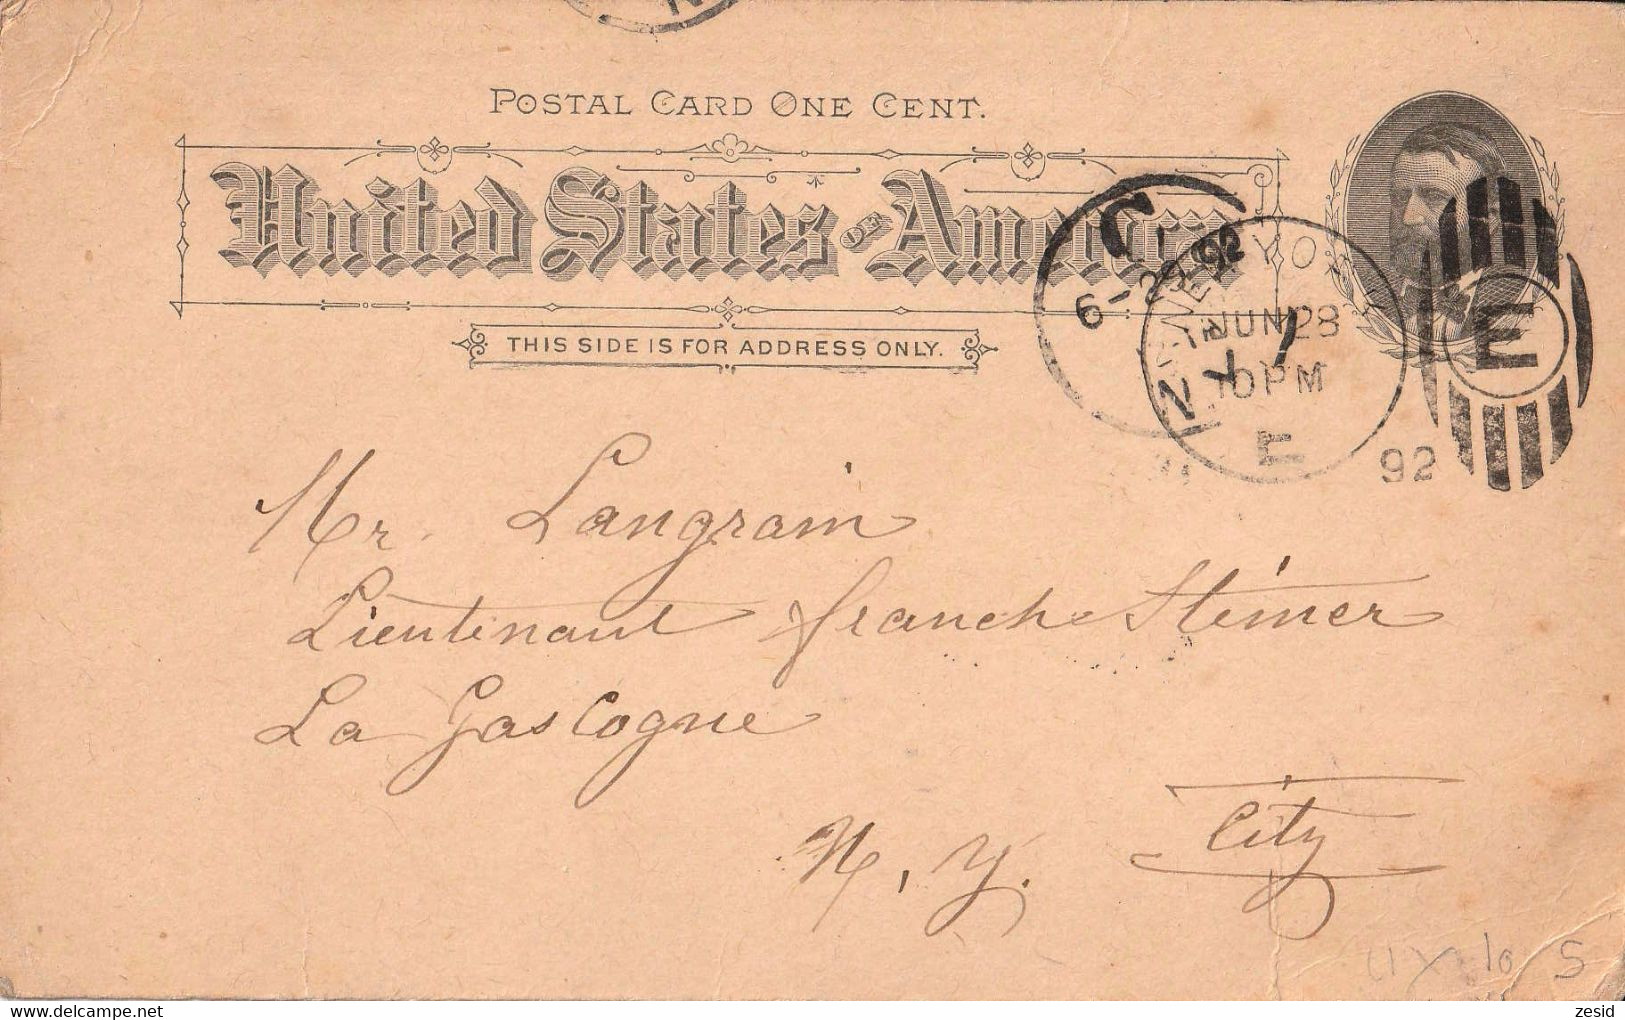 POSTAL CARD ONE CENT.
United States OF America
THIS SIDE IS FOR ADDRESS ONLY.
C.
6-29 92
N Y
NEW YORK
JUN 28
10PM
E
92
E
Mr. Langrain
Lieutenant franch Stimer
La Gascogne
N. Y. City
UX 10 5
zesid